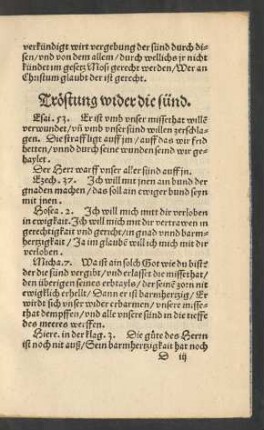 verkündigt wirt vergebung der sünd durch di-
sen/und von dem allem/durch wellichs jr nicht
kündet im gesetz Mosi gerecht werden/Wer an
Christum glaubt der ist gerecht.
Tröstung wider die sünd.
Esai. 53. Er ist vmb vnser missethat willē
verwundet/vñ vmb vnser sünd willen zerschla-
gen. Die straff ligt auff jm/auff das wir frid
hetten/vnnd durch seine wunden seind wir ge-
haylet.
Der Herr warff vnser aller sünd auff in.
Ezech. 37. Ich will mit jnen ain bund der
gnaden machen/das soll ain ewiger bund seyn
mit jnen.
Hosea. 2. Ich will mich mit dir verloben
in ewigkait. Ich will mich mit dir vertrawen in
gerechtigkait vnd gericht/in gnad vnnd barm-
hertzigkait/Ja im glaubē will ich mich mit dir
verloben.
Micha. 7. Wa ist ain solch Got wie du bist/
der die sünd vergibt/vnd erlasset die missethat/
den überigen seines erbtayls/der seinē zorn nit
ewigklich erhelt/Dann er ist barmhertzig/Er
wirdt sich vnser wider erbarmen/vnsere misse-
that dempffen/vnd alle vnsere sünd in die tieffe
des meeres werffen.
Hiere. in der klag. 3. Die güte des Herrn
ist noch nit auß/Sein barmhertzigkait hat noch
D iij